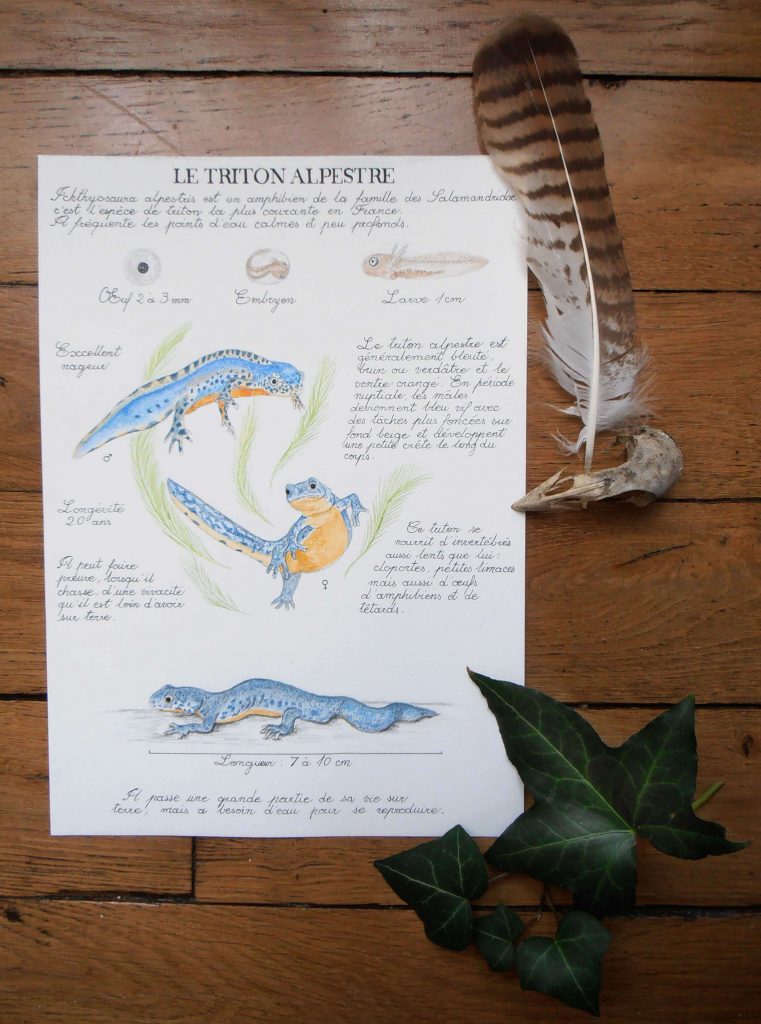 LE TRITON ALPESTRE
Ichthyosaura alpestris est un amphibien de la famille des Salamandridae
c'est l'espèce de triton la plus courante en France.
Il fréquente les points d'eau calmes et peu profonds.
Œuf 2 à 3 mm
Embryon
Larve 1 cm
Excellent
nageur
♂
Le triton alpestre est
généralement bleuté,
brun ou verdâtre et le
ventre orange. En période
nuptiale, les mâles
deviennent bleu vif avec
des tâches plus foncées sur
fond beige et développent
une petite crête le long du
corps.
Longévité
20 ans
Il peut faire
preuve, lorsqu'il
chasse, d'une vivacité
qu'il est loin d'avoir
sur terre.
♀
Ce triton se
nourrit d'invertébrés
aussi lents que lui :
cloportes, petites limaces
mais aussi d'œufs
d'amphibiens et de
têtards.
Longueur : 7 à 10 cm
Il passe une grande partie de sa vie sur
terre, mais a besoin d'eau pour se reproduire.